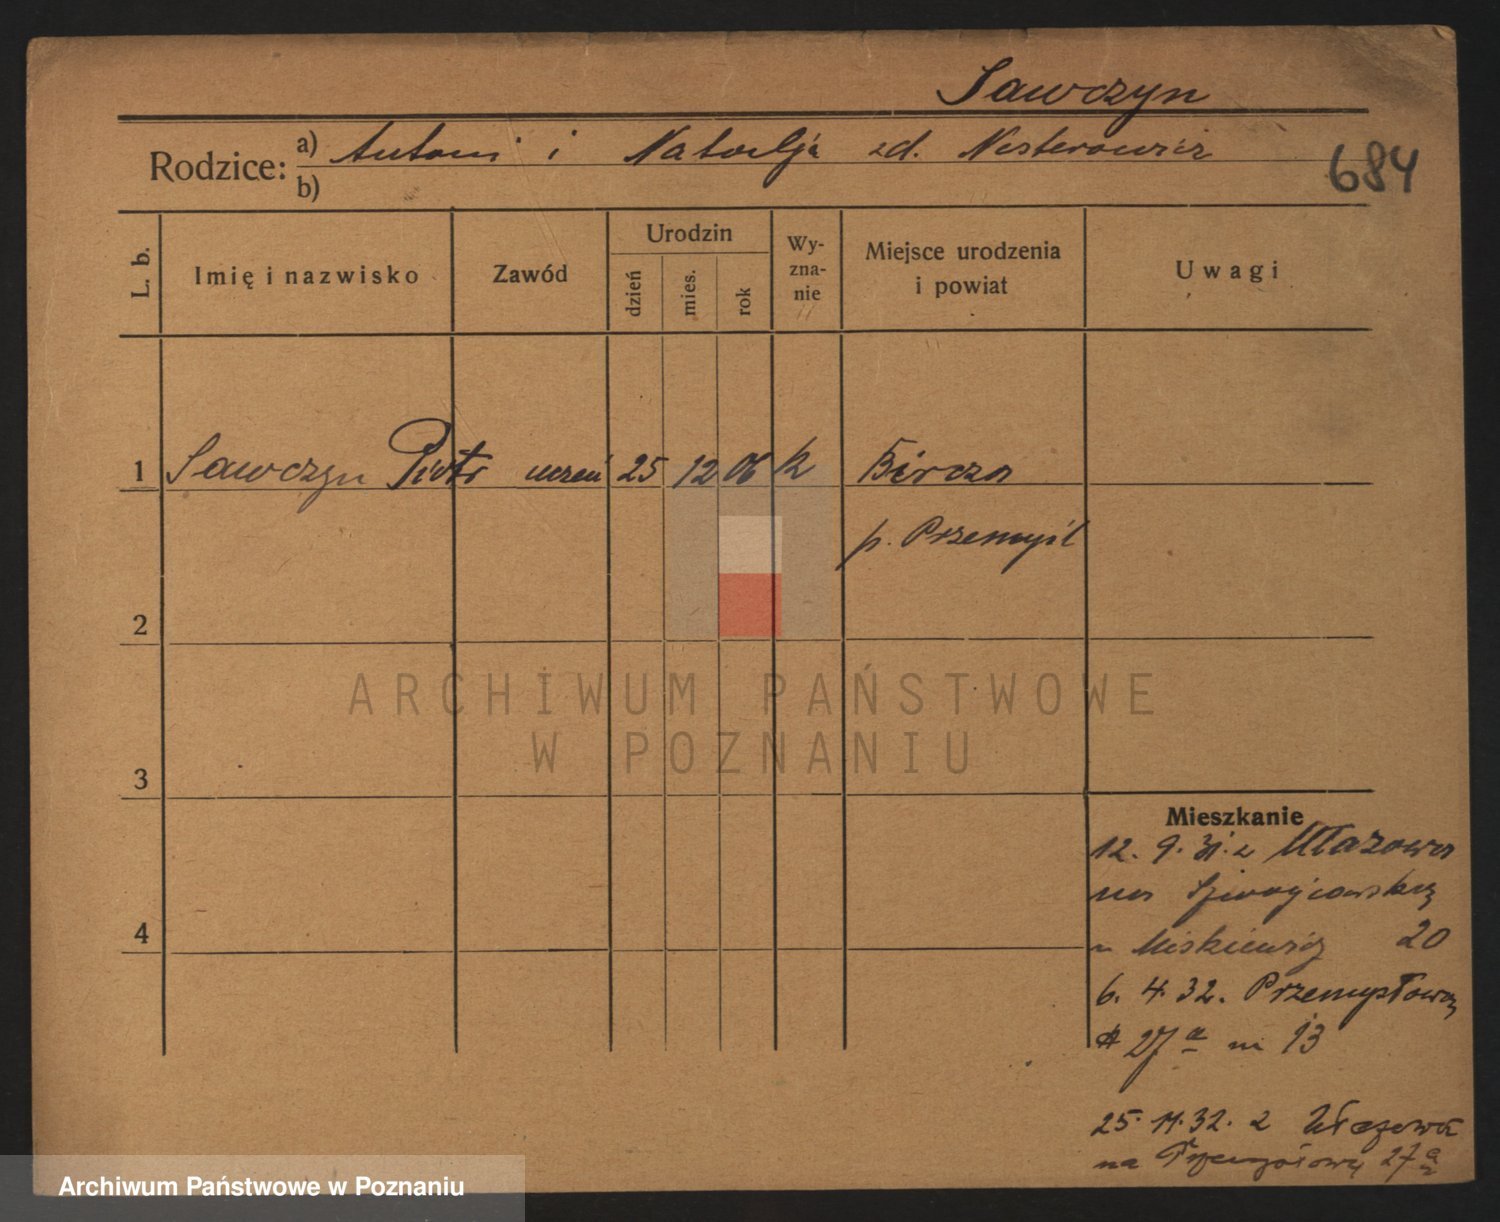 Sawczyn
Rodzice: a) Antoni i Natalja zd. Nesterowicz
b)
684
L. b. Imię i nazwisko Zawód Urodzin dzień mies. rok Wy-zna-nie Miejsce urodzenia i powiat Uwagi
1 Sawczyn Piotr uczeń 25 12 06 k Bircza
p. Przemyśl
2
ARCHIWUM PAŃSTWOWE
W POZNANIU
3
Mieszkanie
12. 9. 31. z Ułazowa
na
4
Miskiewicz 20
6. 4. 32. Przemysłowa
27 a m 13
25. 11. 32. z Ułazowa
na Przemysłową 27 a
Archiwum Państwowe w Poznaniu